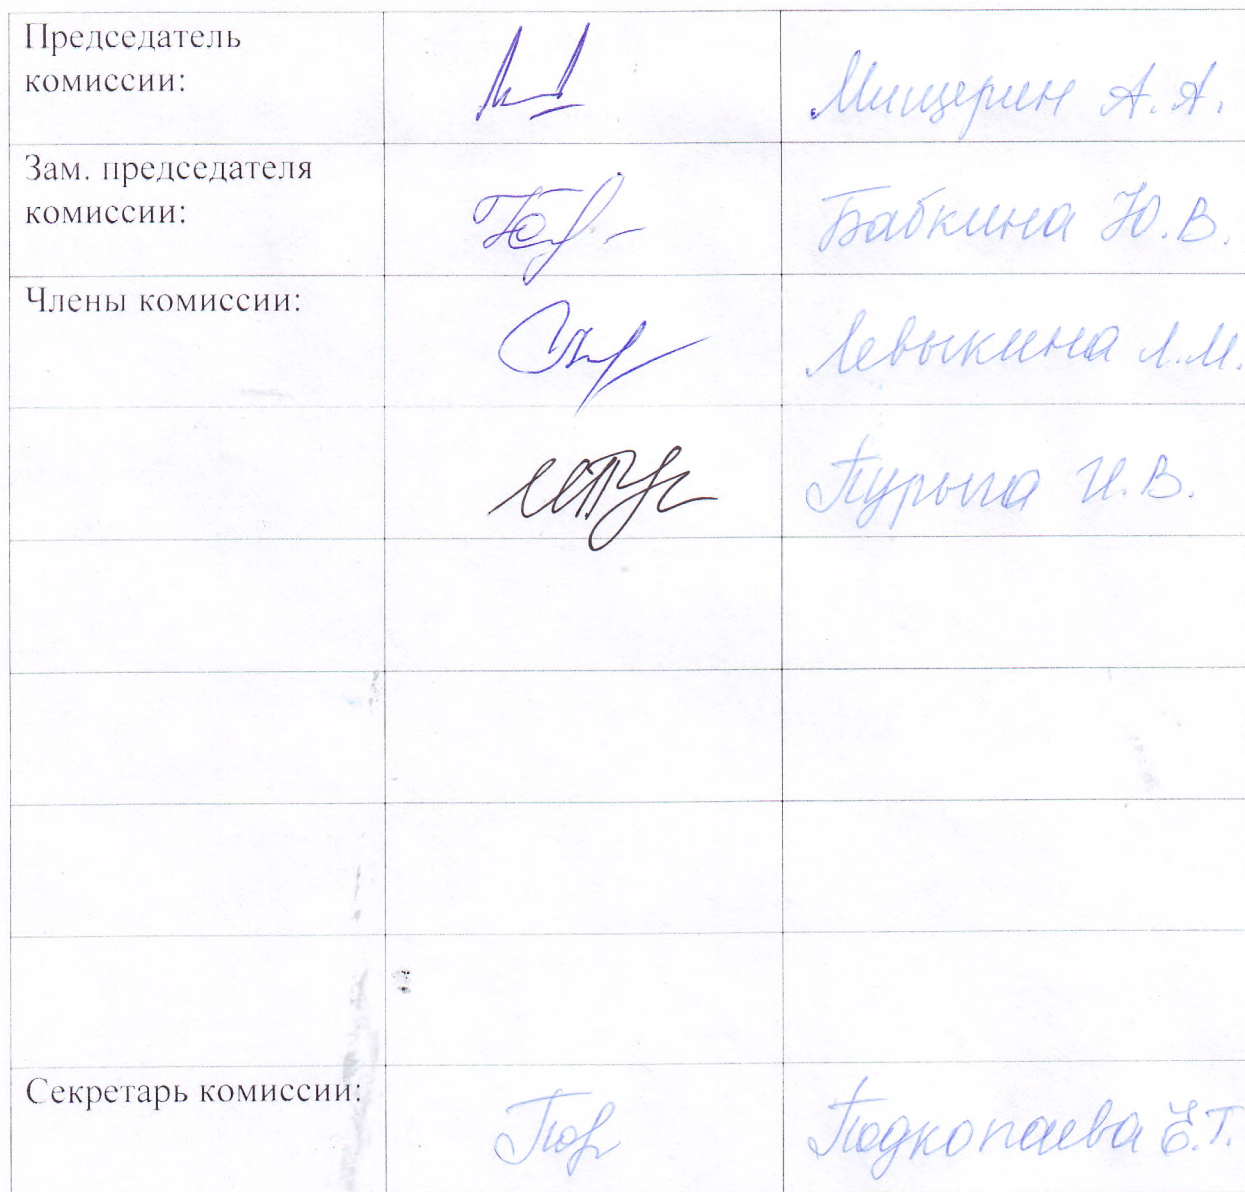 Председатель
комиссии:
Мищерин А. А.
Зам. председателя
комиссии:
Бабкина Ю. В.
Члены комиссии:
Левыкина Л. М.
Пурыга И. В.
Секретарь комиссии:
Подкопаева Е. Т.